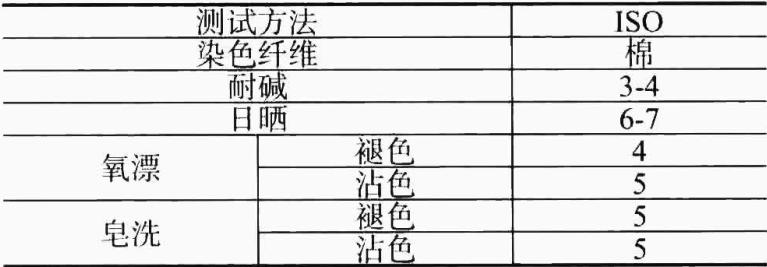 测试方法 ISO
染色纤维 棉
耐碱 3-4
日晒 6-7
氧漂 褪色 4
沾色 5
皂洗 褪色 5
沾色 5